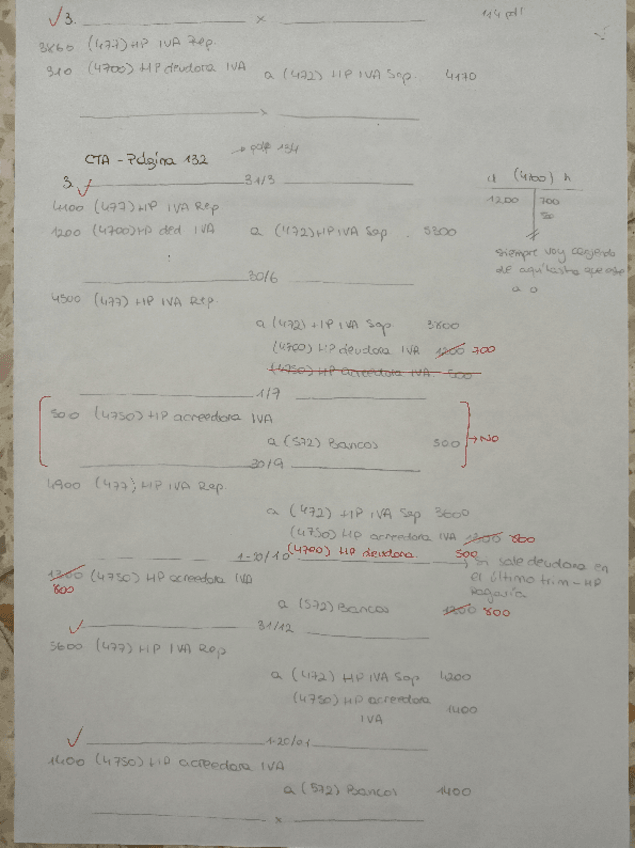 ✓ 3. x 114 pdf
3860 (477) HP IVA Rep.
310 (4700) HP deudora IVA a (472) HP IVA Sop. 4170
x
CTA - Página 132 → pdf 134
3. ✓ 31/3
4100 (477) HP IVA Rep
1200 (4700) HP ded IVA a (472) HP IVA Sop. 5300
d (4700) h
1200 700
50
siempre voy cogiendo
de aquí hasta que
a 0
30/6
4500 (477) HP IVA Rep.
a (472) HP IVA Sop. 3800
(4700) HP deudora IVA 1200 700
(4750) HP acreedora IVA. 500
1/7
500 (4750) HP acreedora IVA
a (572) Bancos 500 → NO
30/9
4900 (477) HP IVA Rep.
a (472) HP IVA Sop 3600
(4750) HP acreedora IVA 1300 800
(4700) HP deudora. 500
1-20/10 → Si sale deudora en
el último trim - HP
Pagaría
1300 (4750) HP acreedora IVA
800
a (572) Bancos 1300 800
✓ 31/12
5600 (477) HP IVA Rep
a (472) HP IVA Sop 4200
(4750) HP acreedora
IVA 1400
✓ 1-20/01
1400 (4750) HP acreedora IVA
a (572) Bancos 1400
x